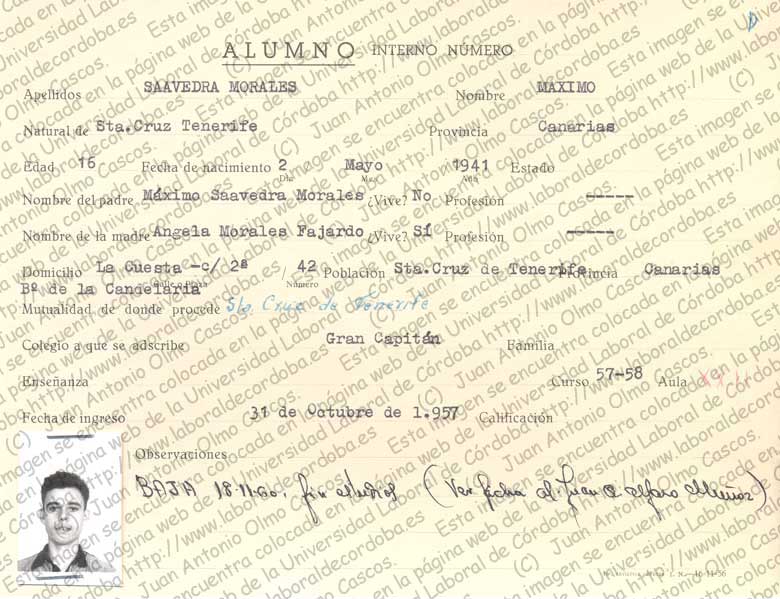 ALUMNO INTERNO NÚMERO
Apellidos SAAVEDRA MORALES Nombre MAXIMO
Natural de Sta.Cruz Tenerife Provincia Canarias
Edad 16 Fecha de nacimiento 2 Mayo 1941 Estado
Día Mes Año
Nombre del padre Máximo Saavedra Morales ¿Vive? No Profesión -----
Nombre de la madre Angela Morales Fajardo ¿Vive? Sí Profesión -----
Domicilio La Cuesta -c/ 2ª / 42 Población Sta.Cruz de Tenerife Provincia Canarias
Bº de la Candelaria Calle o Plaza Número
Mutualidad de donde procede Sta. Cruz de Tenerife
Colegio a que se adscribe Gran Capitán Familia
Enseñanza Curso 57-58 Aula
Fecha de ingreso 31 de Octubre de 1.957 Calificación
Observaciones
BAJA 18-11-60. fin estudios (Ver ficha al. Juan A. Alfaro Muñoz)
16-11-56
(C) Juan Antonio Olmo Cascos. Esta imagen se encuentra colocada en la página web de la Universidad Laboral de Córdoba http://www.laboraldecordoba.es